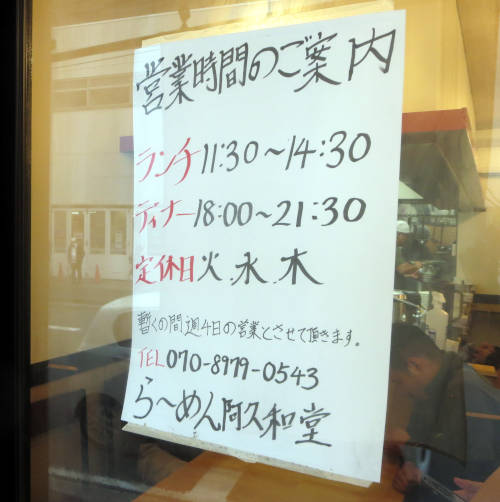 営業時間のご案内
ランチ11:30～14:30
ディナー18:00～21:30
定休日 火、水、木
暫くの間週4日の営業とさせて頂きます。
TEL 070-8979-0543
ら～めん阿久和堂